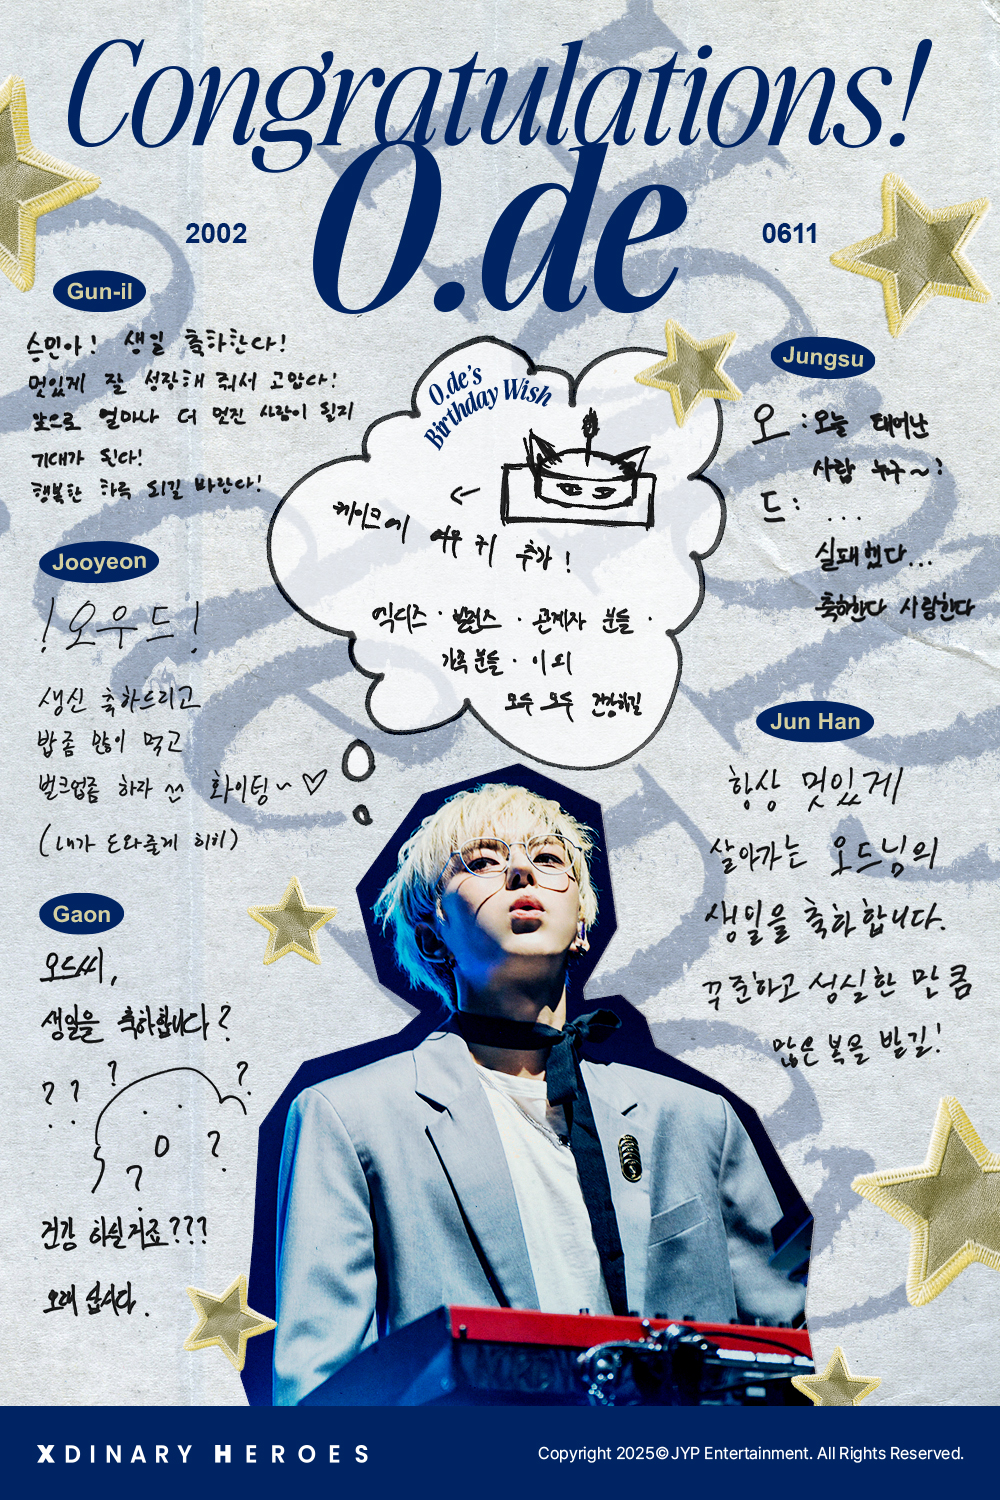 Congratulations!
O.de
2002
0611
Gun-il
승민아! 생일 축하한다!
멋있게 잘 성장해 줘서 고맙다!
앞으로 얼마나 더 멋진 사람이 될지
기대가 된다!
행복한 하루 되길 바란다!
Jooyeon
!오우드!
생신 축하드리고
밥좀 많이 먹고
벌크업좀 하자 화이팅~♡
(내가 도와줄게 히히)
Gaon
오드씨,
생일을 축하합니다?
? ? ? ?
? ?
건강 하실거죠???
오래 삽시다.
O.de's
Birthday Wish
←
케이크에 여우 귀 추가!
엑디즈 · 빌런즈 · 관계자 분들 ·
가족분들 · 이 외
모두 모두 건강하길
Jungsu
오 : 오늘 태어난
사람 누구~?
드 : ...
실패했다...
축하한다 사랑한다
Jun Han
항상 멋있게
살아가는 오드님의
생일을 축하합니다.
꾸준하고 성실한 만큼
많은 복을 받길!
XDINARY HEROES
Copyright 2025© JYP Entertainment. All Rights Reserved.